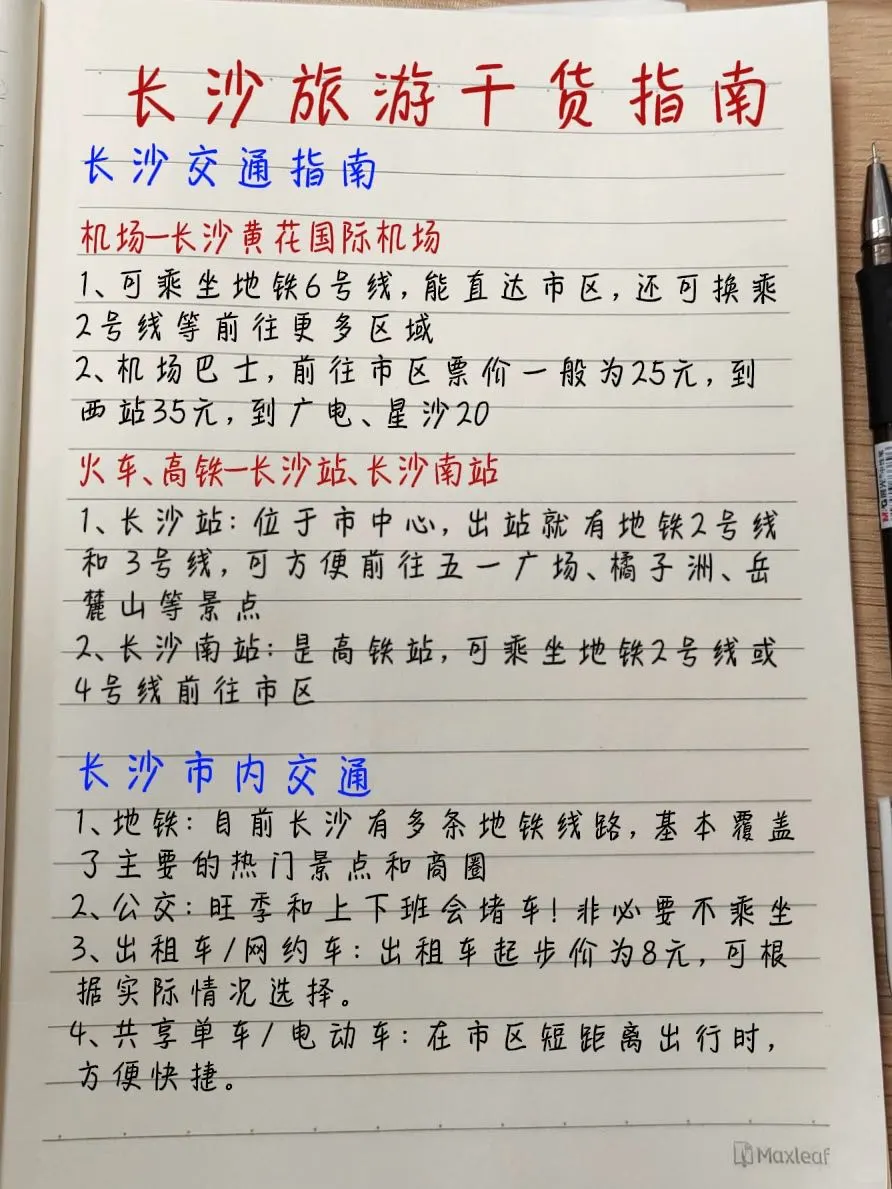 长沙旅游干货指南
长沙交通指南
机场—长沙黄花国际机场
1、可乘坐地铁6号线,能直达市区,还可换乘
2号线等前往更多区域
2、机场巴士,前往市区票价一般为25元,到
西站35元,到广电、星沙20
火车、高铁—长沙站、长沙南站
1、长沙站:位于市中心,出站就有地铁2号线
和3号线,可方便前往五一广场、橘子洲、岳
麓山等景点
2、长沙南站:是高铁站,可乘坐地铁2号线或
4号线前往市区
长沙市内交通
1、地铁:目前长沙有多条地铁线路,基本覆盖
了主要的热门景点和商圈
2、公交:旺季和上下班会堵车!非必要不乘坐
3、出租车/网约车:出租车起步价为8元,可根
据实际情况选择。
4、共享单车/电动车:在市区短距离出行时,
方便快捷。
Maxleaf